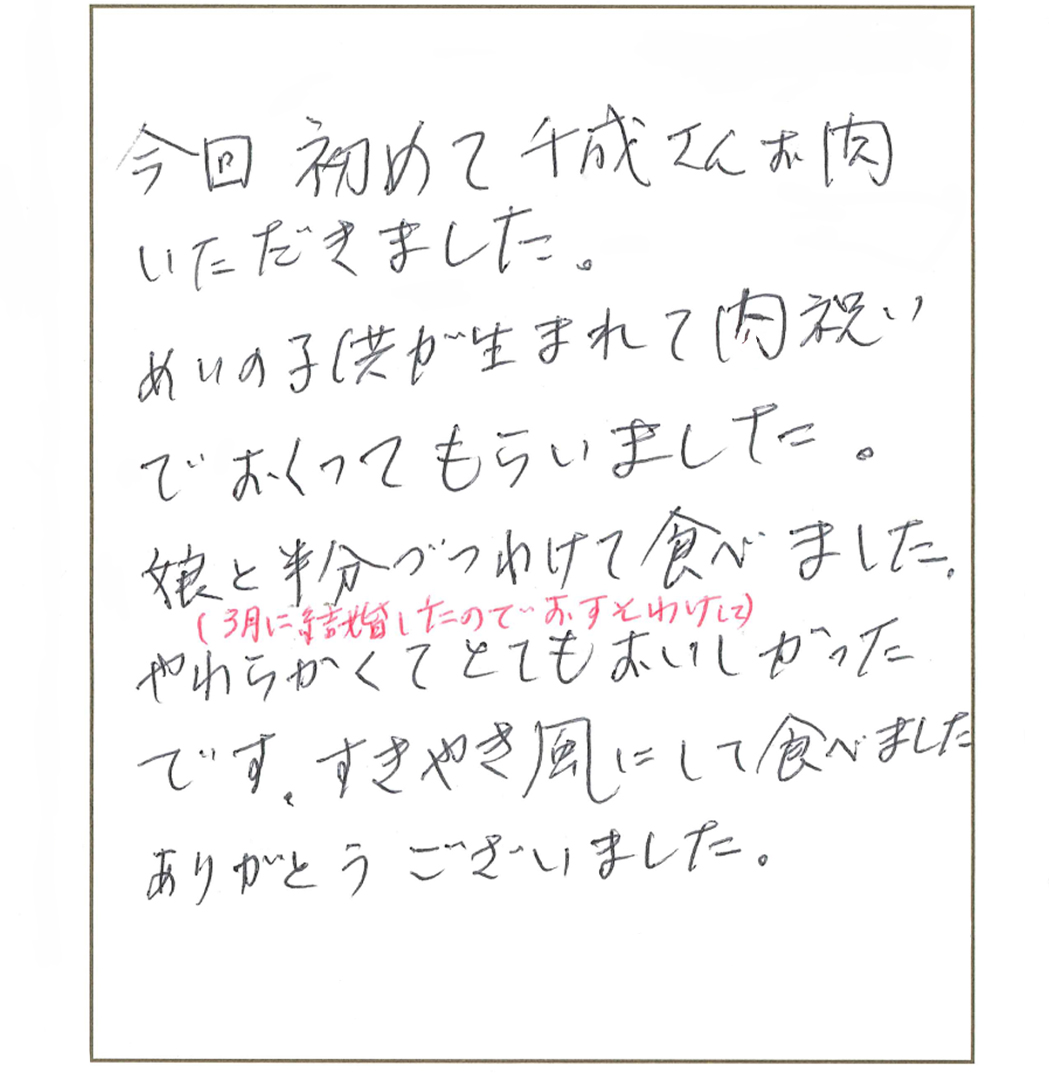 今回 初めて千成さんお肉
いただきました。
めいの子供が生まれて肉祝い
でおくってもらいました。
娘と半分づつわけて食べました.
(3月に結婚したのでおすそわけして)
やわらかくてとてもおいしかった
です. すきやき風にして食べました
ありがとうございました。